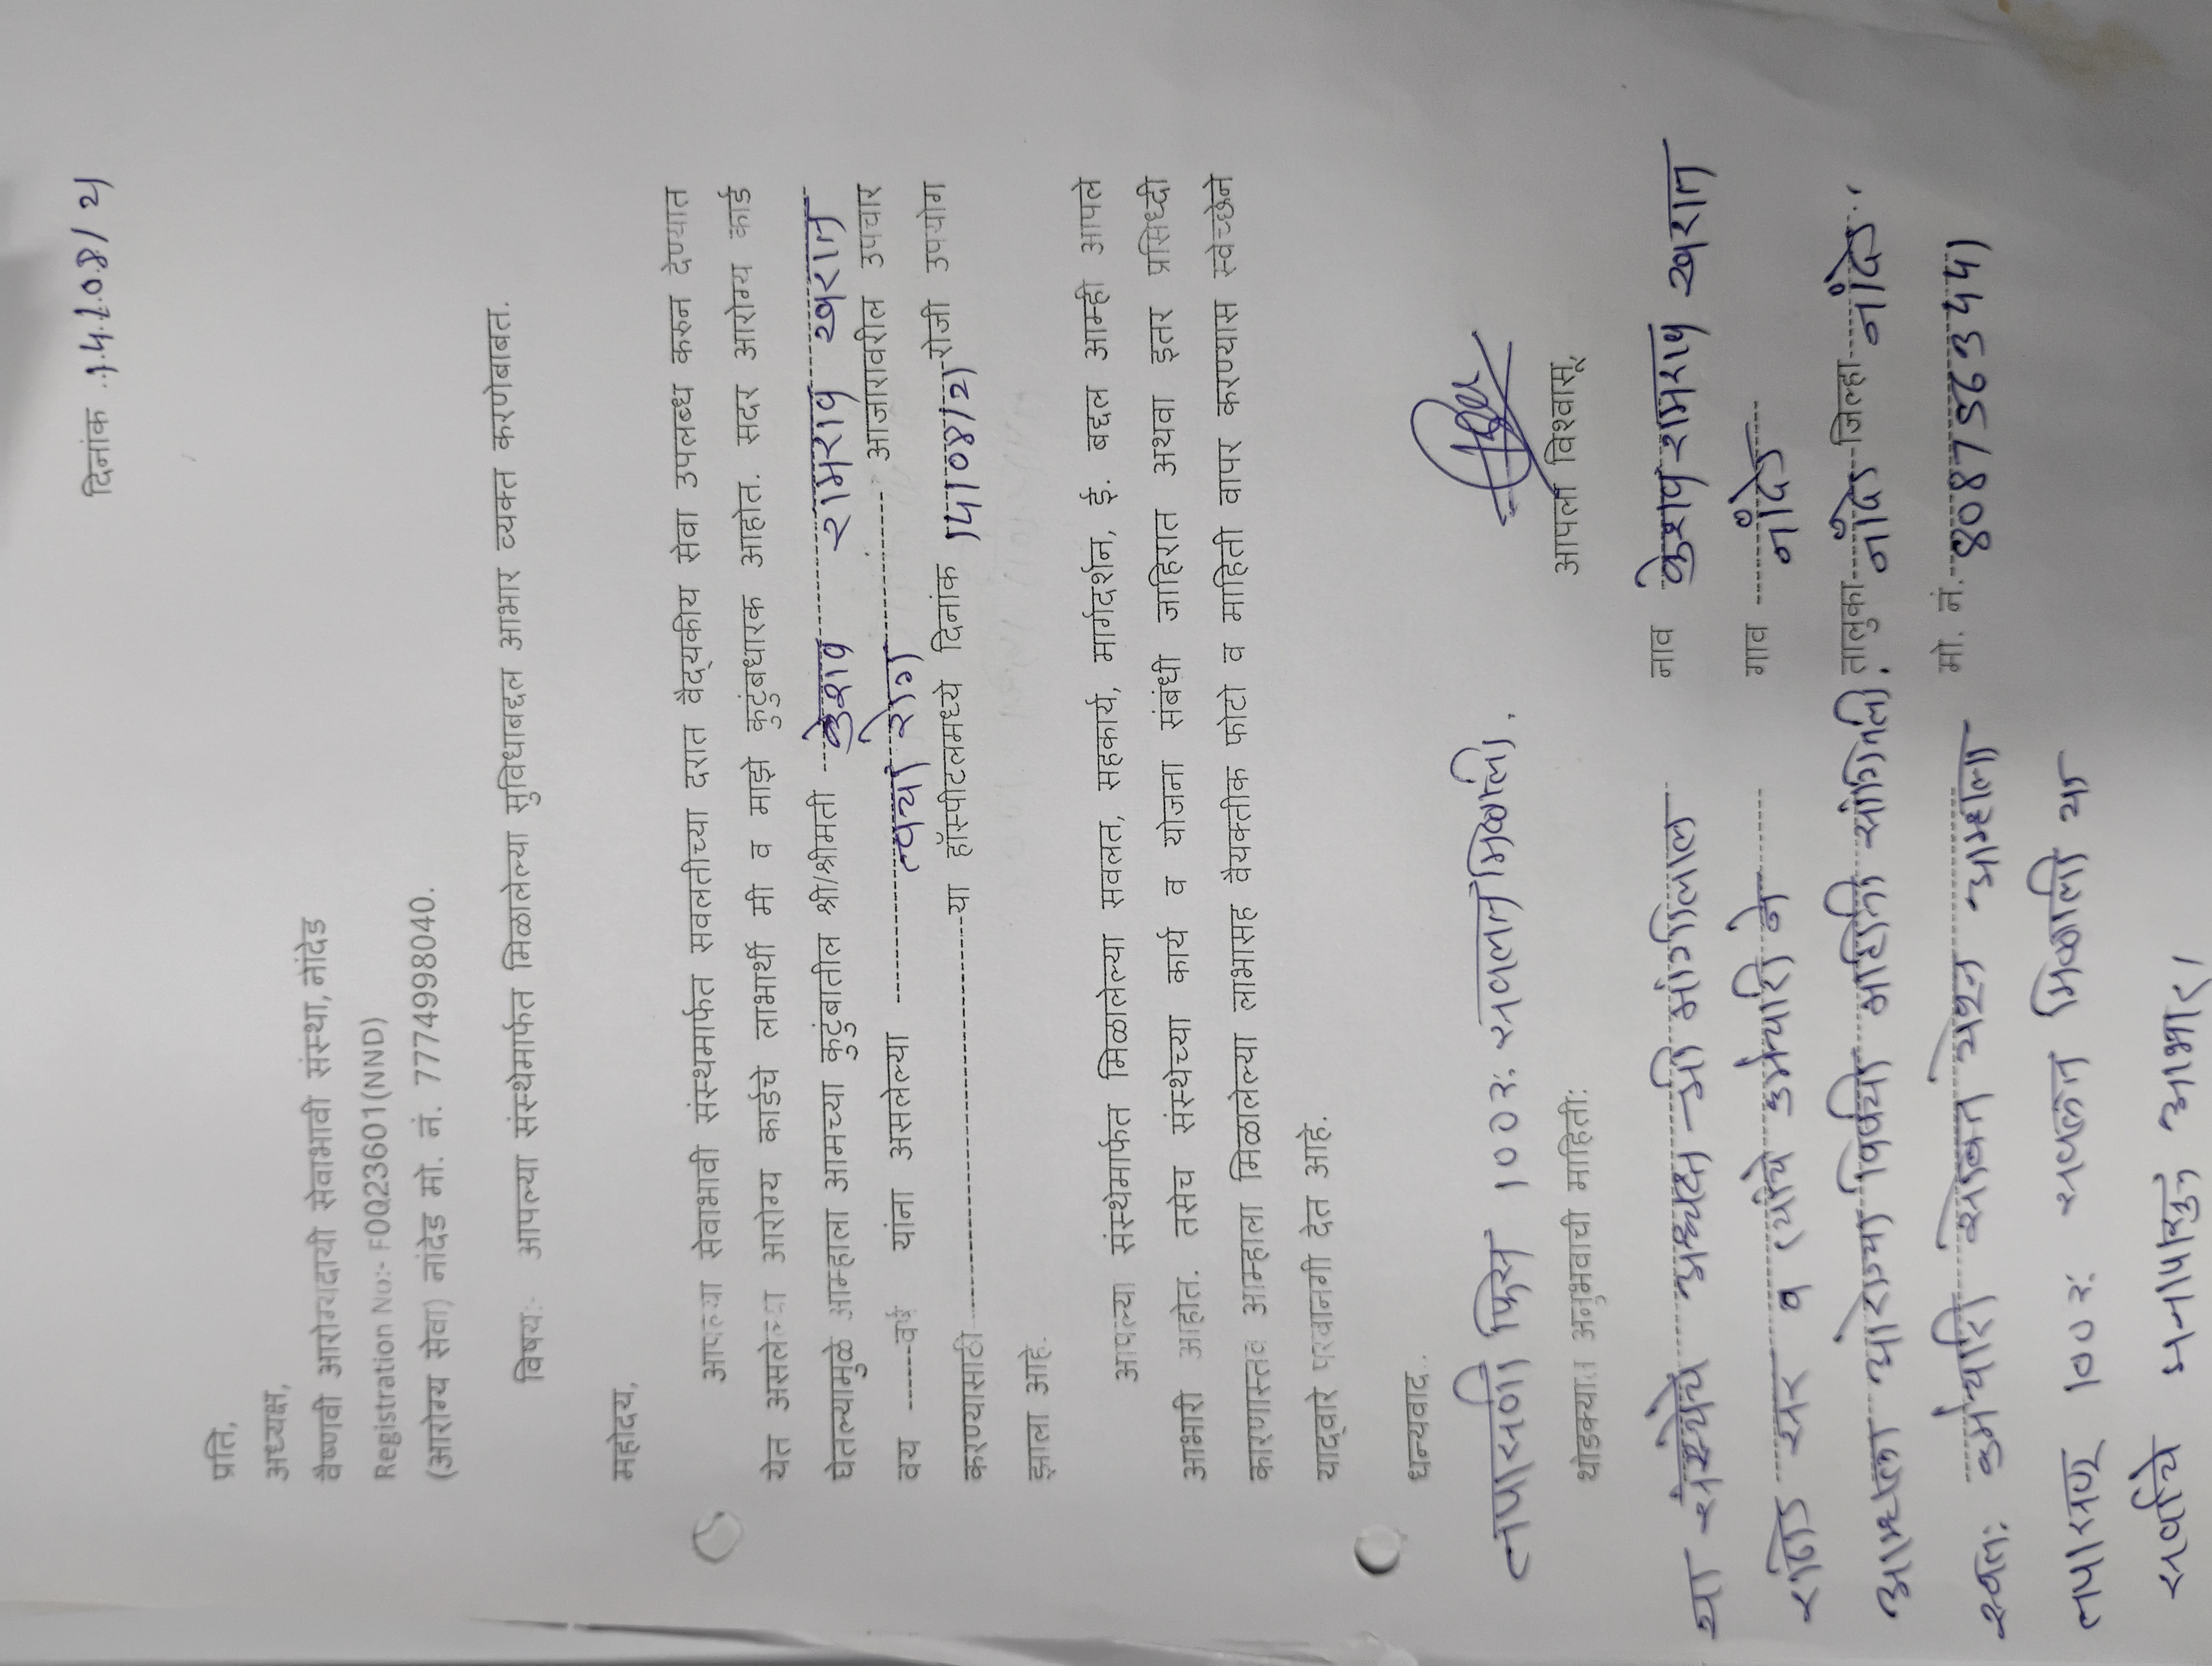 दिनांक .15/08/21
प्रति,
अध्यक्ष,
वैष्णवी आरोग्यदायी सेवाभावी संस्था, नांदेड
Registration No:- F0Q23601(NND)
(आरोग्य सेवा) नांदेड मो. नं. 7774998040.
विषय:- आपल्या संस्थेमार्फत मिळालेल्या सुविधाबद्दल आभार व्यक्त करणेबाबत.
महोदय,
आपल्या सेवाभावी संस्थेमार्फत सवलतीच्या दरात वैद्यकीय सेवा उपलब्ध करुन देण्यात
येत असलेल्या आरोग्य कार्डचे लाभार्थी मी व माझे कुटुंबधारक आहोत. सदर आरोग्य कार्ड
घेतल्यामुळे आम्हाला आमच्या कुटुंबातील श्री/श्रीमती केशव रामराव खराने
वय ------वर्ष यांना असलेल्या त्वचा रोग आजारावरील उपचार
करण्यासाठी ------या हॉस्पीटलमध्ये दिनांक 15/08/21 रोजी उपयोग
झाला आहे.
आपल्या संस्थेमार्फत मिळालेल्या सवलत, सहकार्य, मार्गदर्शन, ई. बद्दल आम्ही आपले
आभारी आहोत. तसेच संस्थेच्या कार्य व योजना संबंधी जाहिरात अथवा इतर प्रसिध्दी
कारणास्तव आम्हाला मिळालेल्या लाभासह वैयक्तीक फोटो व माहिती वापर करण्यास स्वेच्छेने
याद्वारे परवानगी देत आहे.
धन्यवाद..
तपासणी फिस 100रु सवलत मिळाली.
आपला विश्वासू,
थोडक्यात अनुभवाची माहिती:
नाव केशव रामराव खराने
या संस्थेचे अध्यक्ष श्री
गाव नांदेड
राठोड सर व त्यांचे कर्मचारी ने
तालुका नांदेड जिल्हा नांदेड..
आम्हाला आरोग्या विषयी माहिती सांगितली.
मो. नं. 8087563551
कर्मचारी सोबत येऊन आम्हाला
100रु सवलत मिळाली या
सर्वांचे मनापासुन आभार।